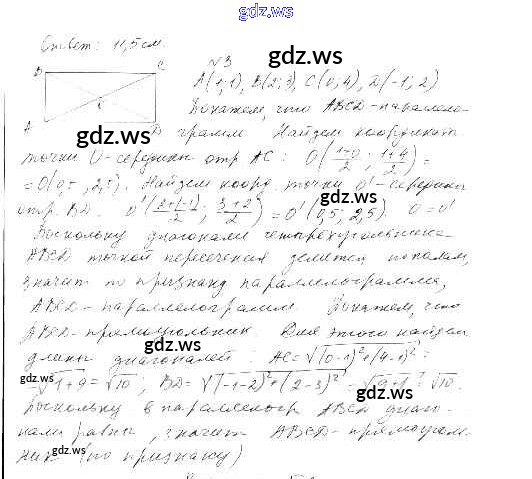 gdz.ws
Ответ: 11,5 см.
№3
gdz.ws
B C
A(1;1), B(2;3), C(0;4), D(-1;2)
Докажем, что ABCD - параллело-
A D грамм Найдем координат
gdz.ws
точки O - середины отр AC: O(1+0/2; 1+4/2) =
= O(0,5; 2,5). Найдем коорд. точки O' - середины
отр. BD. O'(2+(-1)/2; 3+2/2) = O'(0,5; 2,5) O = O'
gdz.ws gdz.ws
Поскольку диагонали четырехугольника
ABCD точкой пересечения делятся пополам,
значит по признаку параллелограмма,
ABCD - параллелограмм Докажем, что
ABCD - прямоугольник. Для этого найдем
длины диагоналей: AC = √(0-1)²+(4-1)² =
gdz.ws
= √1+9 = √10; BD = √(-1-2)²+(2-3)² = √9+1 = √10.
gdz.ws gdz.ws
Поскольку в параллелогр ABCD диаго-
нали равны, значит ABCD - прямоугол-
ник (по признаку)
gdz.ws gdz.ws